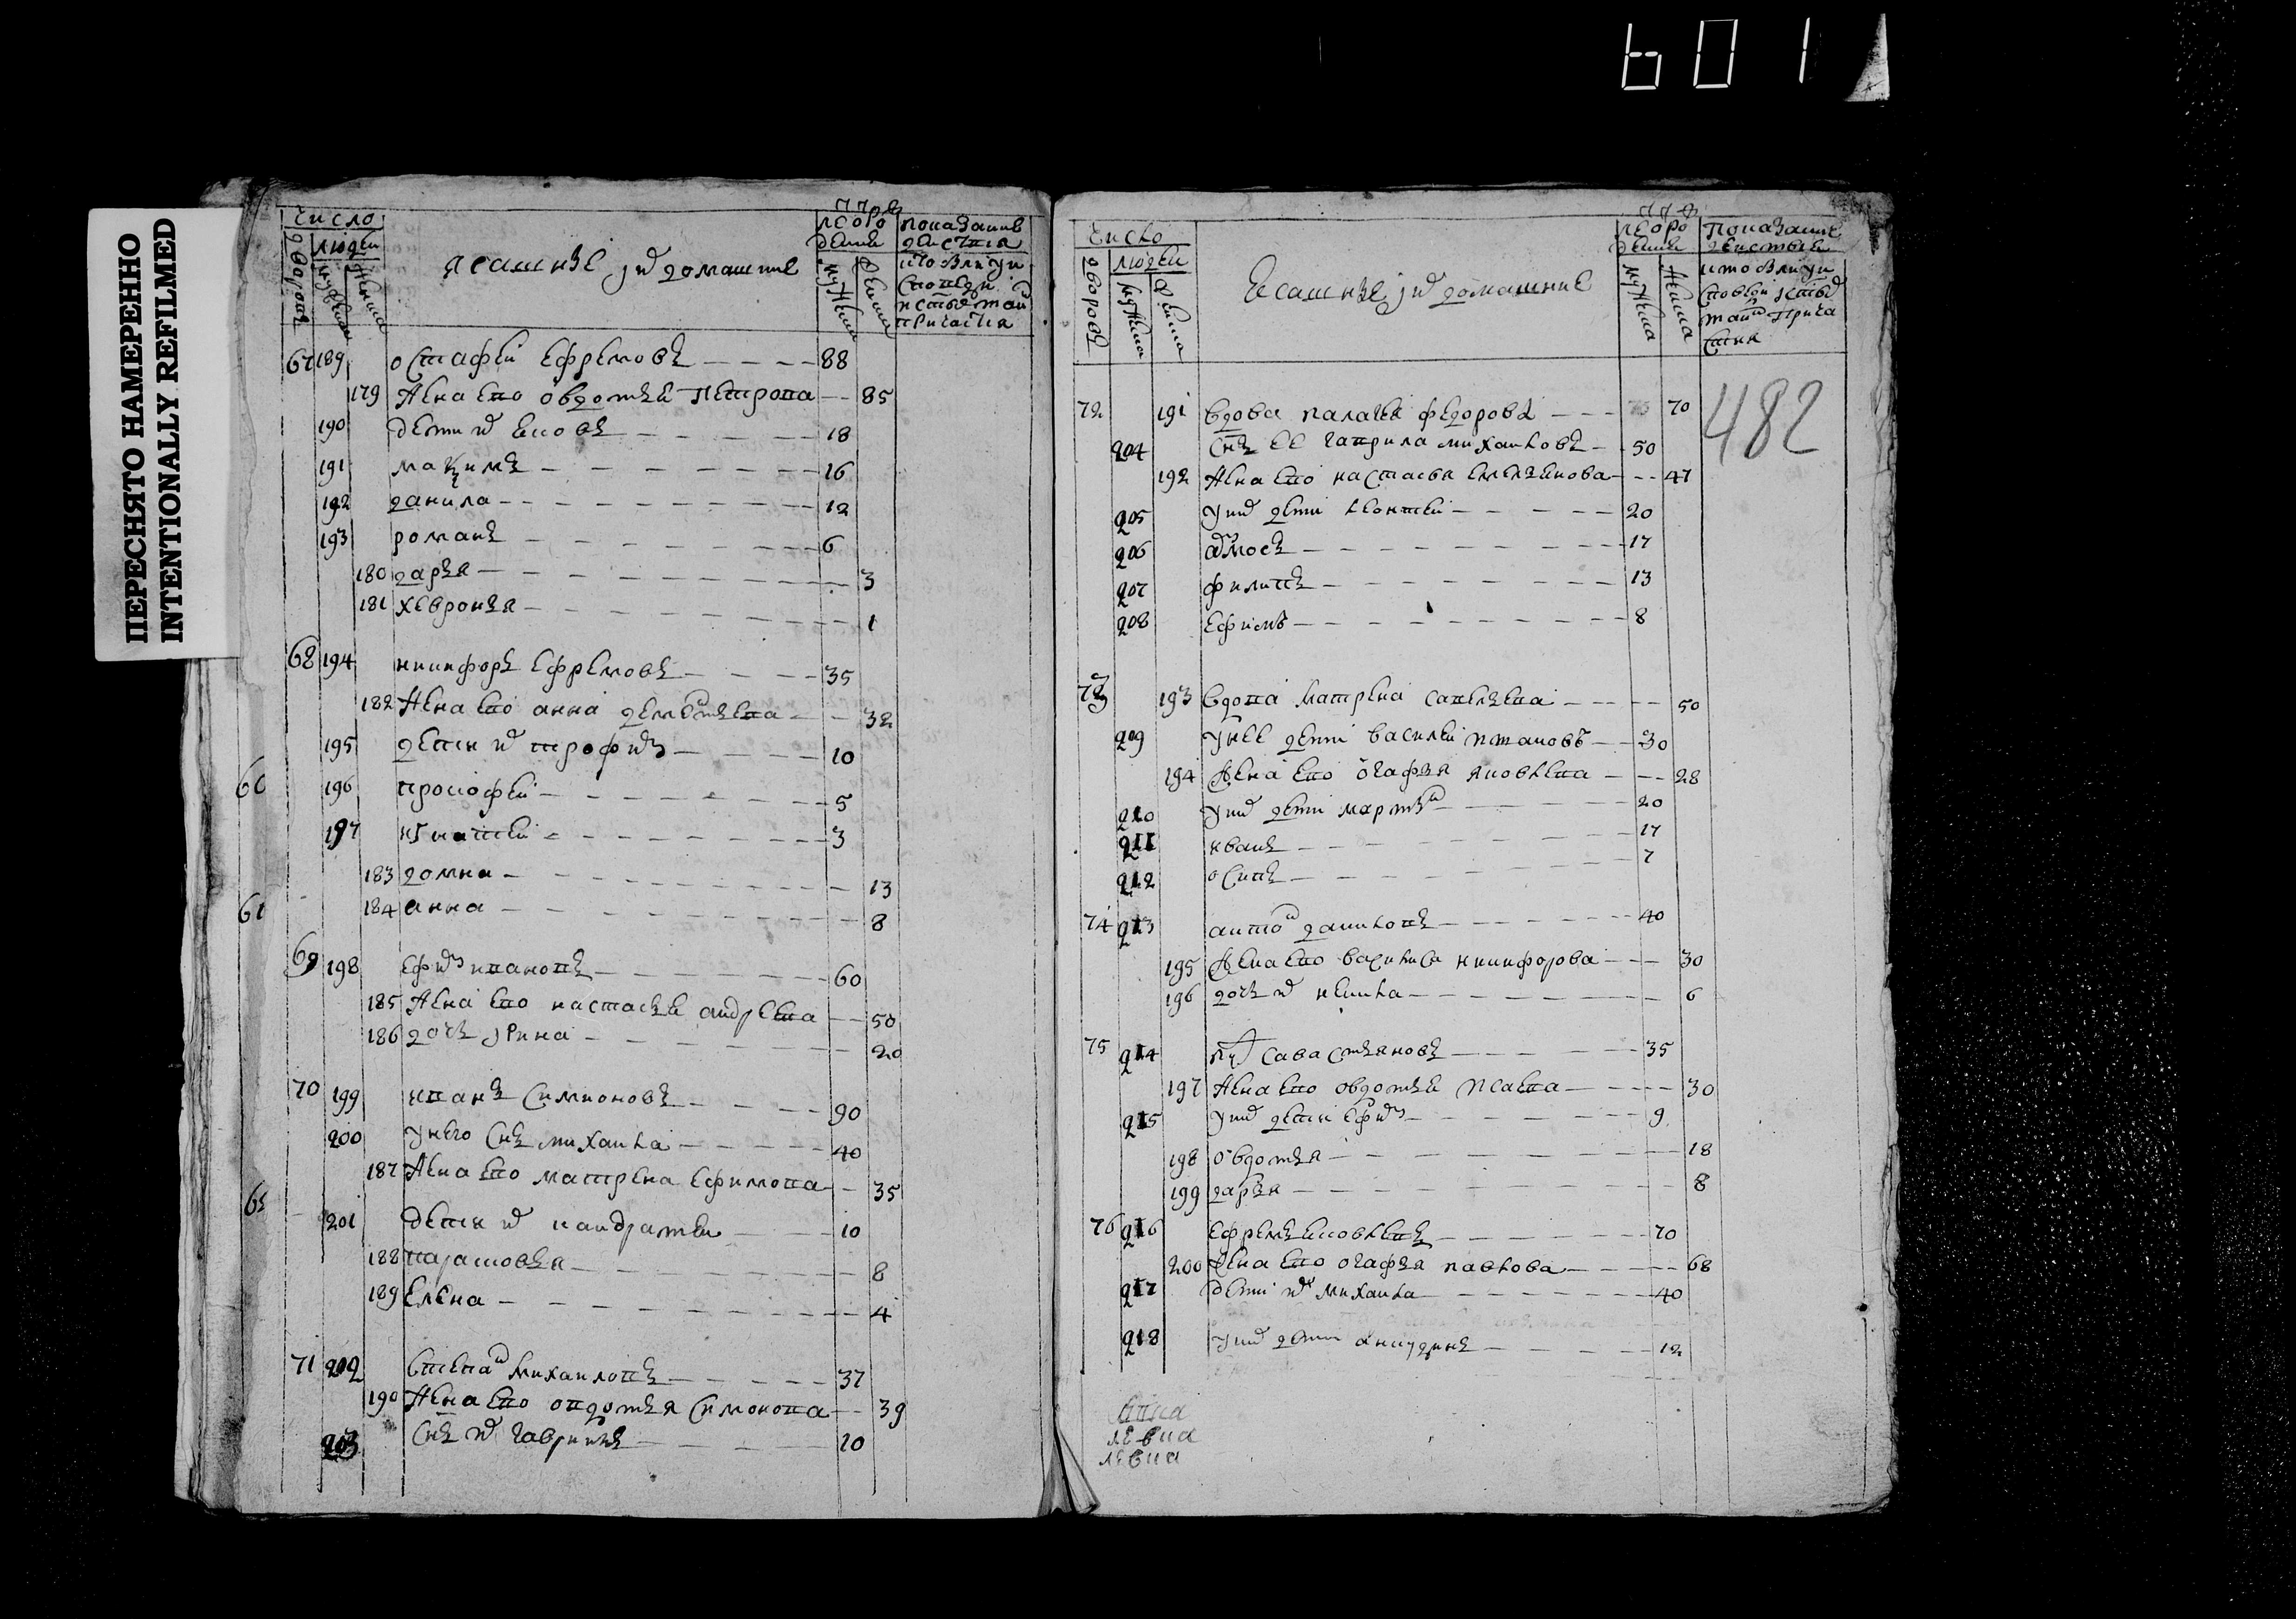 ПЕРЕСНЯТО НАМЕРЕННО
INTENTIONALLY REFILMED
601
Число
людей
дворовъ
мужска
женска
ясашные и домашние
лесоро
дение
мужска
женска
показание
действия
кто былъ у
исповеди
и святыхъ таин
причастия
67 189 остафеи ефремовъ 88
179 жена ево овдотья петрова 85
190 дети их яковъ 18
191 мазимъ 16
192 данила 12
193 романъ 6
180 дарья 3
181 хевронья 1
68 194 никифоръ ефремовъ 35
182 жена ево анна дементьева 32
195 дети их трофим 10
196 прокофеи 5
197 игнатеи 3
183 домна 13
184 анна 8
69 198 ефим ивановъ 60
185 жена ево настасья андреева 50
186 дочь ирина 20
70 199 иванъ симионовъ 90
200 у него снъ михаила 40
187 жена ево матрена ефимова 35
201 дети их кандратеи 10
188 парасковья 8
189 елена 4
71 202 степан михаиловъ 37
190 жена ево овдотья симонова 39
203 снъ их гаврила 20
60
61
Число
людеи
дворовъ
мужска
женска
ясашные и домашние
лесоро
дение
мужска
женска
показание
действия
кто былъ у
исповеди и святых
таин прича
стия
482
72 191 вдова палагея федорова 70
204 снъ ее гаврила михаиловъ 50
192 жена ево настасья емельянова 47
205 у них дети леонтеи 20
206 амосъ 17
207 филипъ 13
208 ефимъ 8
73 193 вдова матрена савельева 50
209 у нее дети василеи степановъ 30
194 жена ево огафья яковлева 28
210 у них дети мартын 20
211 иванъ 17
212 осипъ 7
74 213 антон даниловъ 40
195 жена ево василиса никифорова 30
196 дочь их ненила 6
75 214 савастьяновъ 35
197 жена ево овдотья исаева 30
215 у них дети ефим 9
198 овдотья 18
199 дарья 8
76 216 ефремъ яковлевъ 70
200 жена ево огафья павлова 68
217 дети их михаила 40
218 у них дети аникудинъ 12